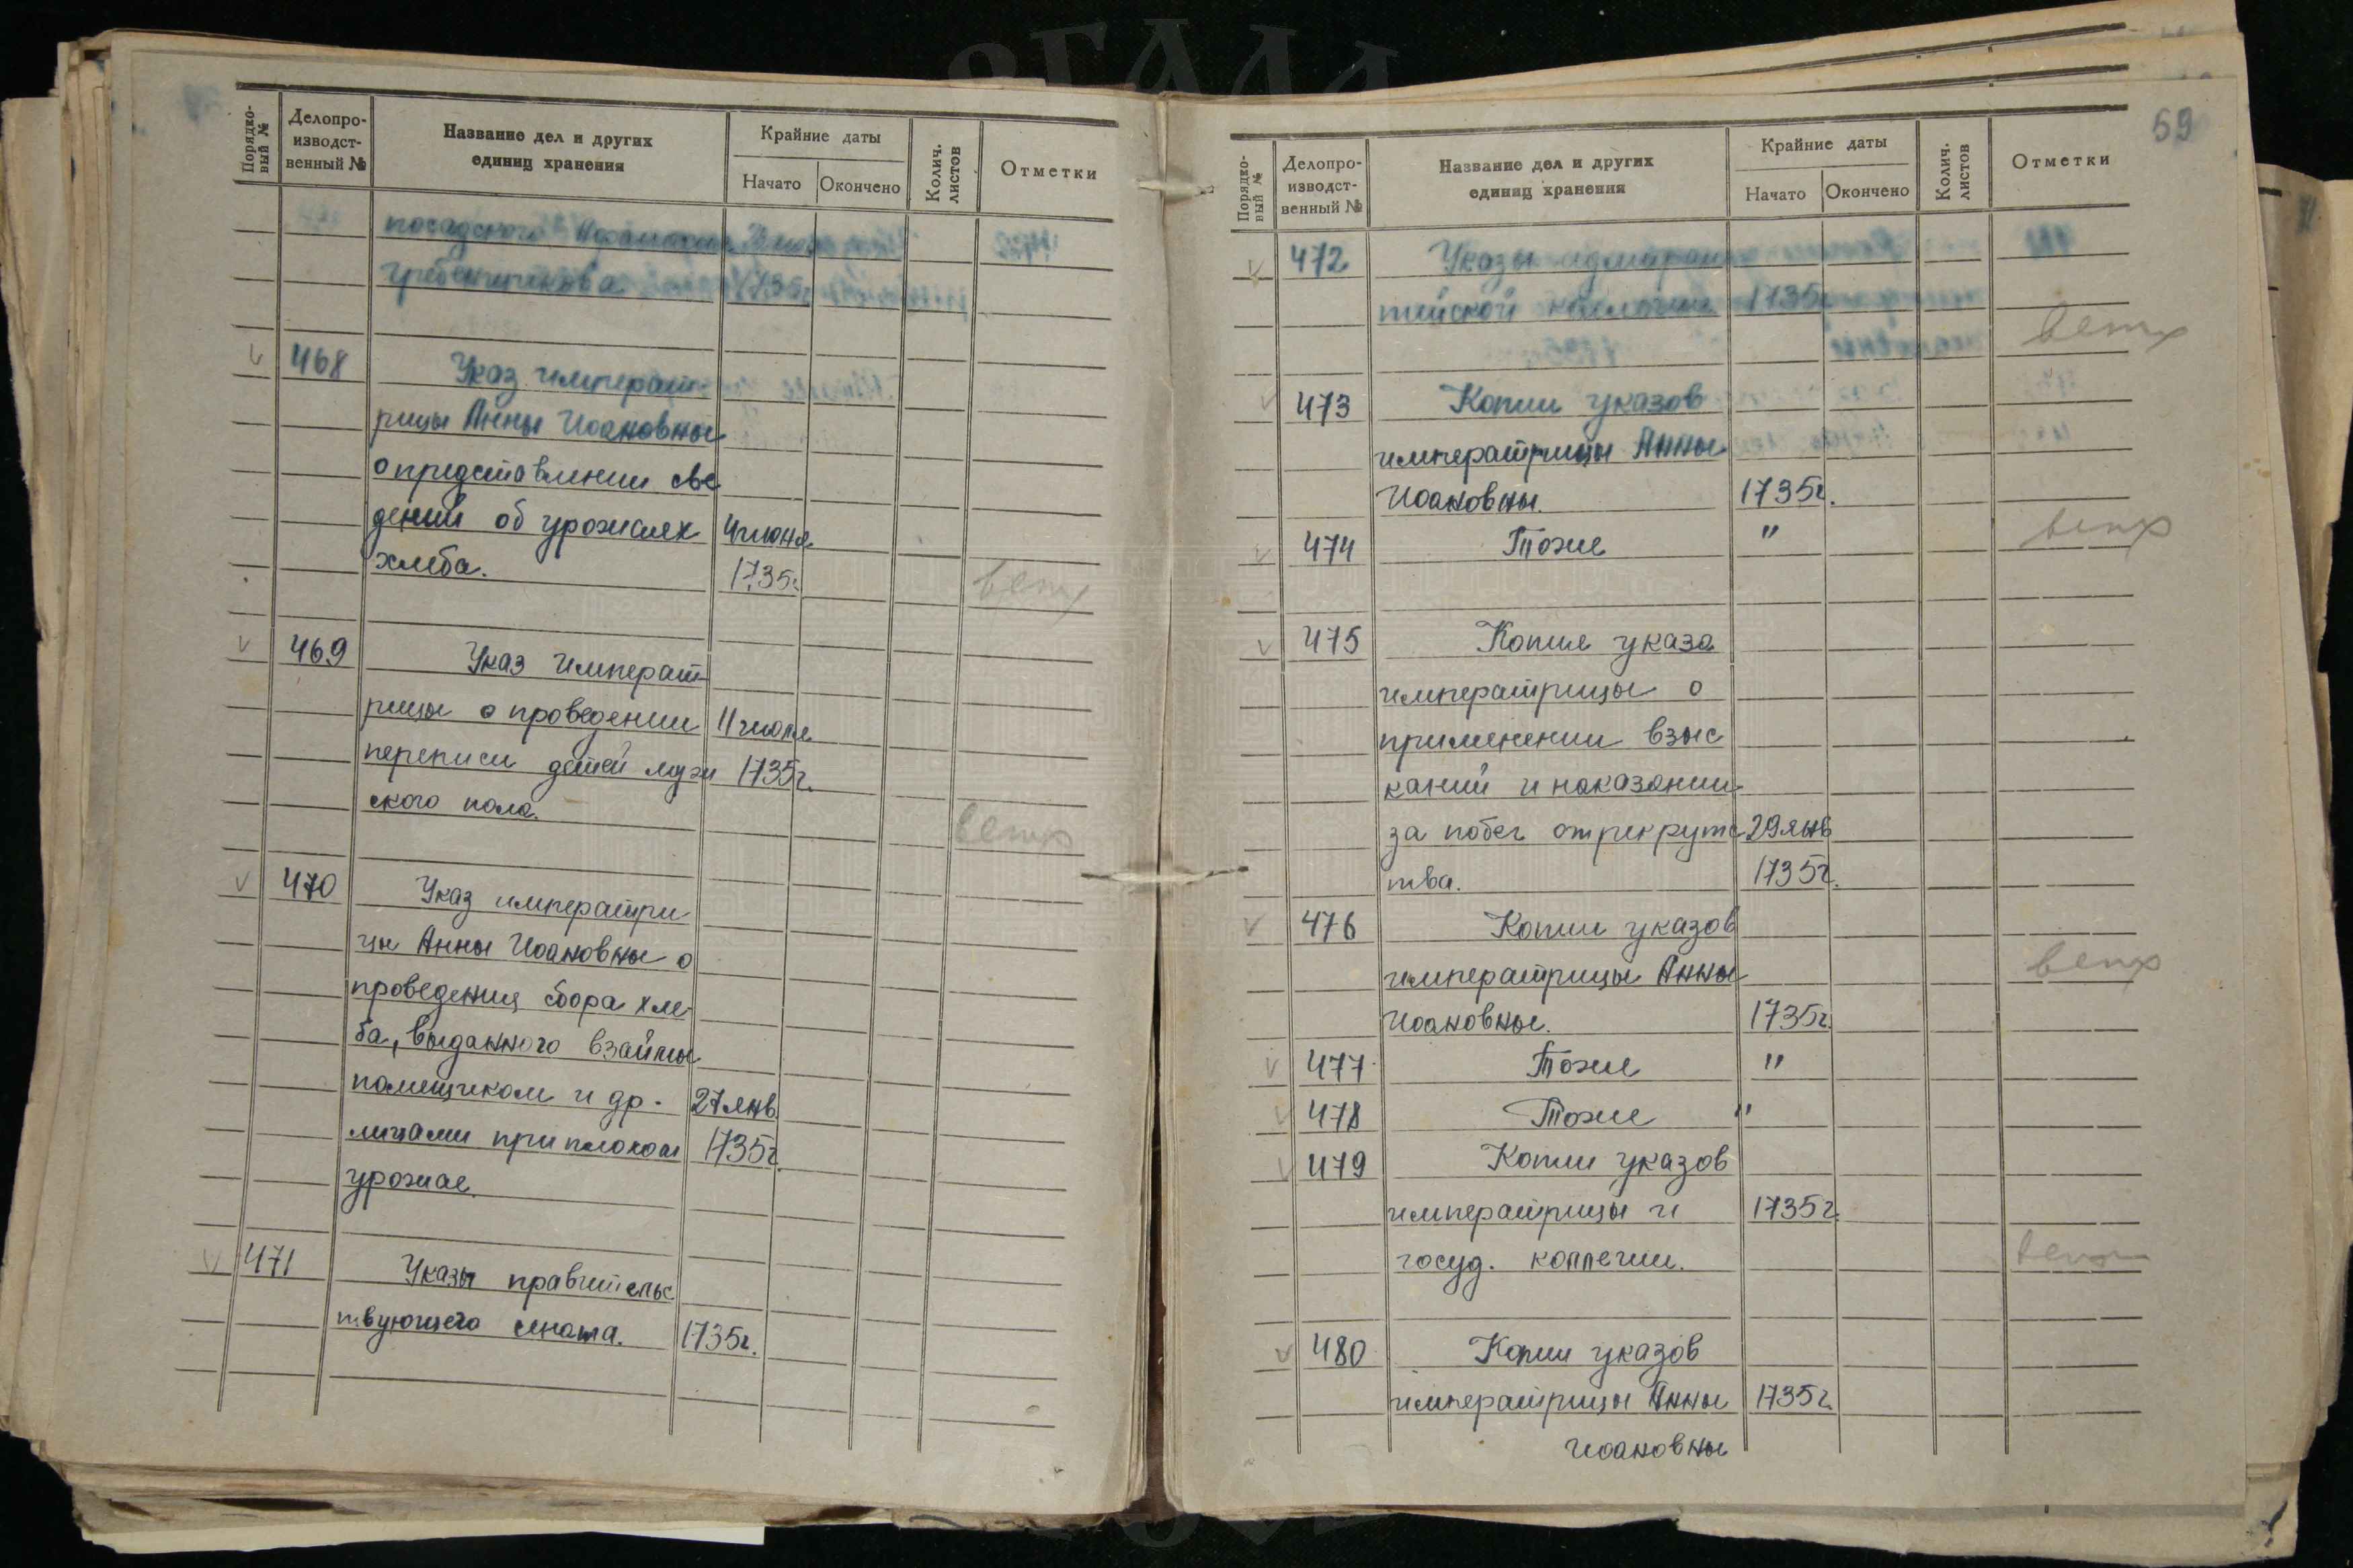 Порядко-
вый №
Делопро-
изводст-
венный №
Название дел и других
единиц хранения
Крайние даты
Начато
Окончено
Колич.
листов
Отметки
посадского
Гребенщикова 1735г
468 Указ императ-
рицы Анны Иоановны
о представлении све
дений об урожаях 4 июня
хлеба. 1735г.
ветх
469 Указ императ
рицы о проведении 11 июля
переписи детей муж 1735г.
ского пола.
ветх
470 Указ императри
цы Анны Иоановны о
проведения сбора хле-
ба, выданного взаймы
помещиком и др. 27 янв.
лицами при плохом 1735г.
урожае.
471 Указы правительс
твующего сената. 1735г.
59
Порядко-
вый №
Делопро-
изводст-
венный №
Название дел и других
единиц хранения
Крайние даты
Начато
Окончено
Колич.
листов
Отметки
472 Указы адмирал
тейской коллегии 1735г
ветх
473 Копии указов
императрицы Анны
Иоановны. 1735г.
474 Тоже " ветх
475 Копия указа
императрицы о
применении взыс
каний и наказании
за побег от рекрутс 29 янв
тва. 1735г.
476 Копии указов
императрицы Анны ветх
Иоановны. 1735г.
477 Тоже "
478 Тоже "
479 Копии указов
императрицы и 1735г.
госуд. коллегии. ветх
480 Копии указов
императрицы Анны 1735г.
Иоановны